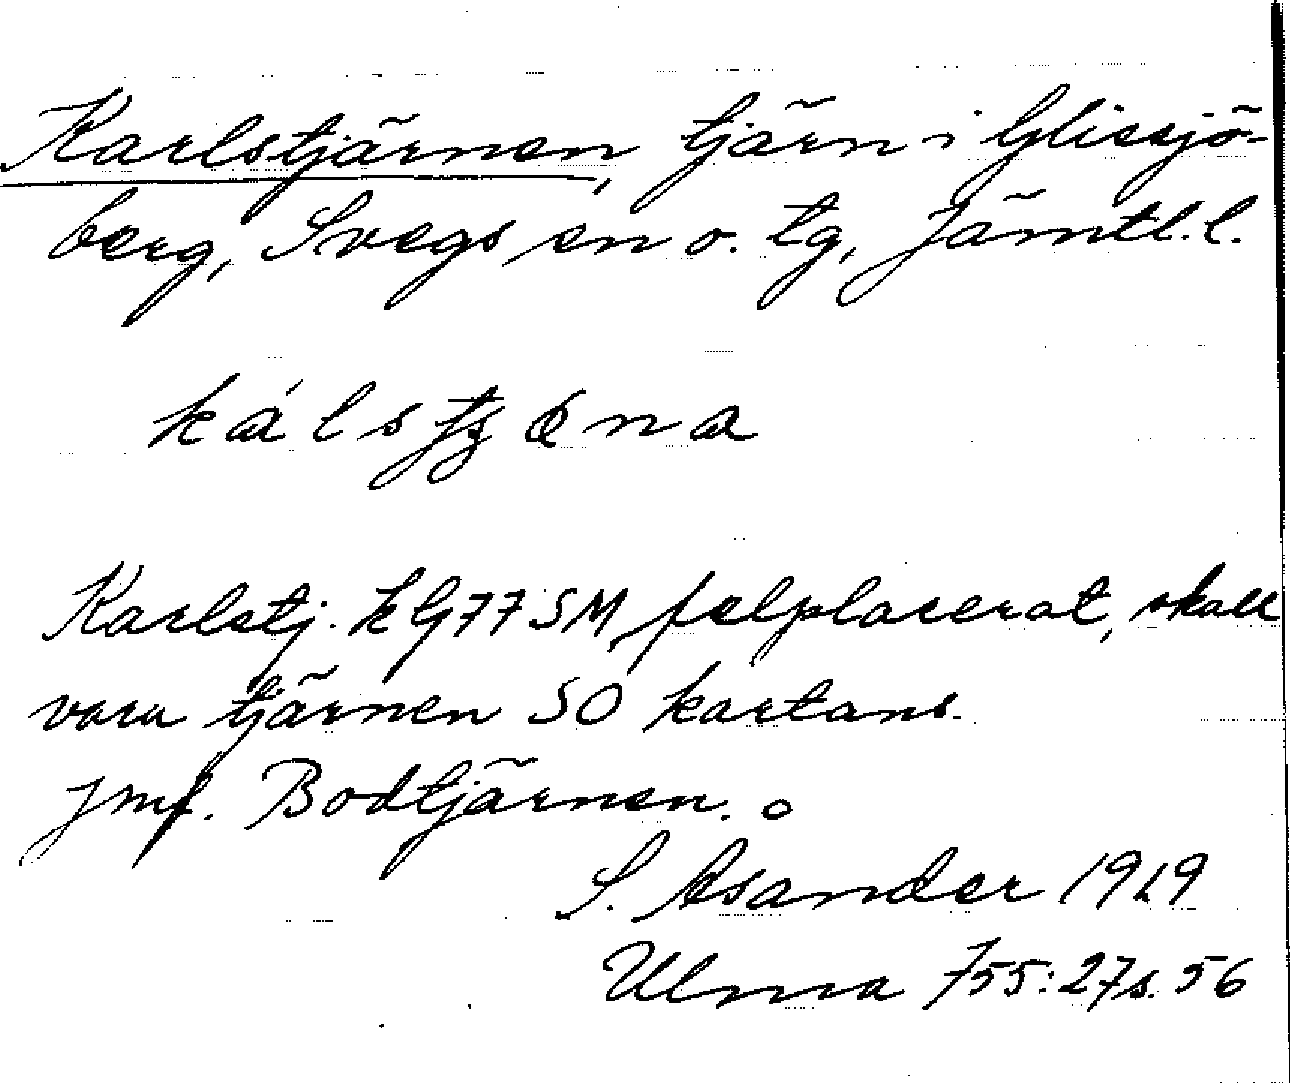 Karlstjärnen, tjärn i Glissjö-
berg, Svegs sn o. tg, Jämtl. l.
Karlstj. kG77SM, felplacerat, skall
vara tjärnen SO kartans.
jmf. Bodtjärnen. o
S. Asander 1919
Ulma 755:27 s. 56